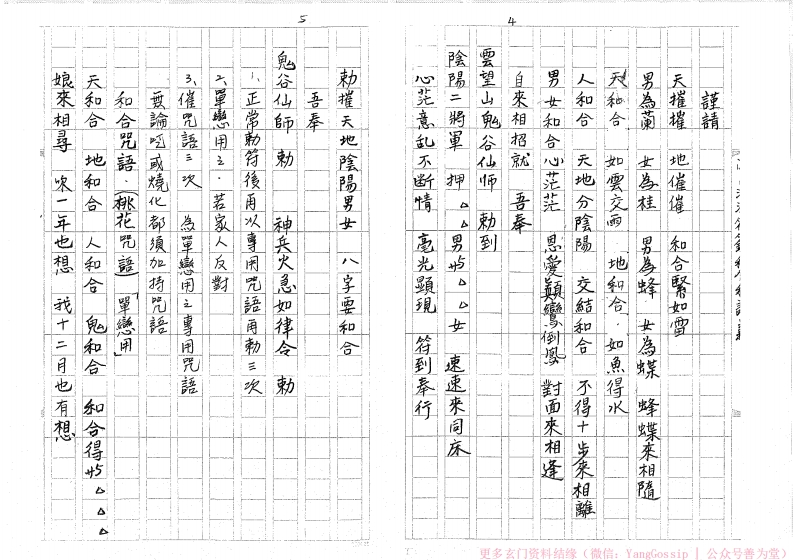 4
謹請
天摧摧 地催催 和合緊如雪
男為蘭 女為桂 男為蜂 女為蝶 蜂蝶來相隨
天和合 如雲交雨 地和合．如魚得水
人和合 天地分陰陽 交結和合 不得十步來相離
男女和合心茫茫 恩愛顛鸞倒鳳 對面來相逢
自來相招就 吾奉
雲望山鬼谷仙师 勅到
陰陽二將軍 押△△男与△△女 速速來同床
心茫意乱不断情 毫光顯現 符到奉行
5
勅摧天地陰陽男女 八字要和合
吾奉
鬼谷仙師 勅 神兵火急如律令 勅
1、正常勅符後再以專用咒語再勅三次
2、單戀用之．若家人反對
3、催咒語三次 為單戀用之專用咒語
無論吃或燒化都須加持咒語
和合咒語．(桃花咒語)「單戀用」
天和合 地和合 人和合 鬼和合 和合得与△△△
娘來相尋 一年也想 我十二月也有想
更多玄门资料结缘（微信：YangGossip | 公众号善为堂）